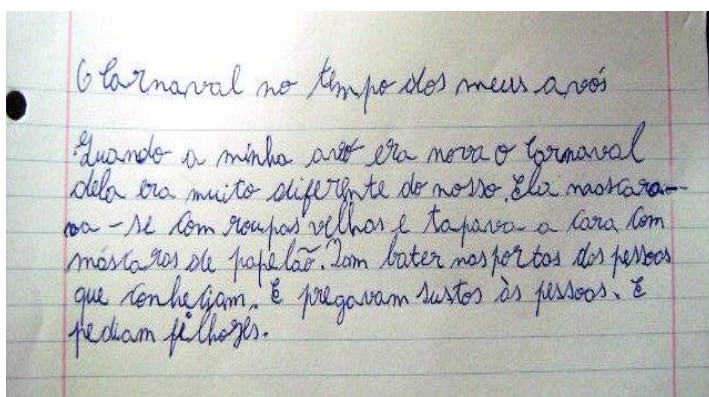 O Carnaval no tempo dos meus avós
Quando a minha avó era nova o Carnaval
dela era muito diferente do nosso. Ela mascara-
va-se com roupas velhas e tapava a cara com
máscaras de papelão. Iam bater nas portas das pessoas
que conheciam. E pregavam sustos às pessoas. E
pediam filhozes.